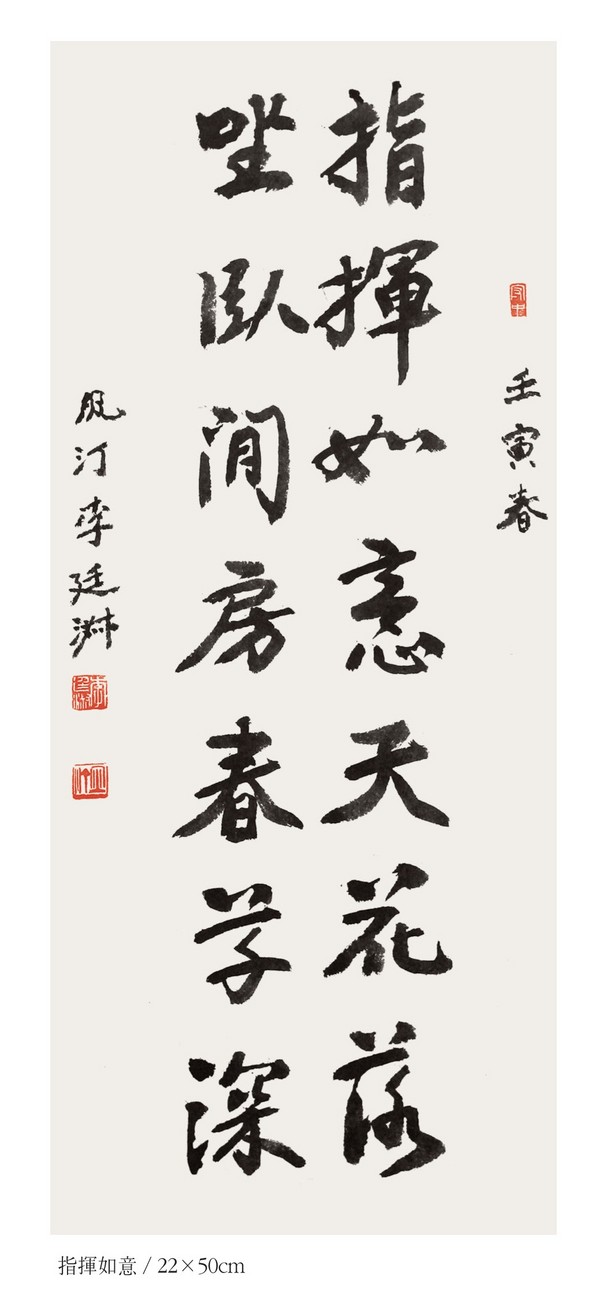 壬寅春
指揮如意天花落
坐臥閒房春草深
汀李廷
指揮如意 / 22×50cm